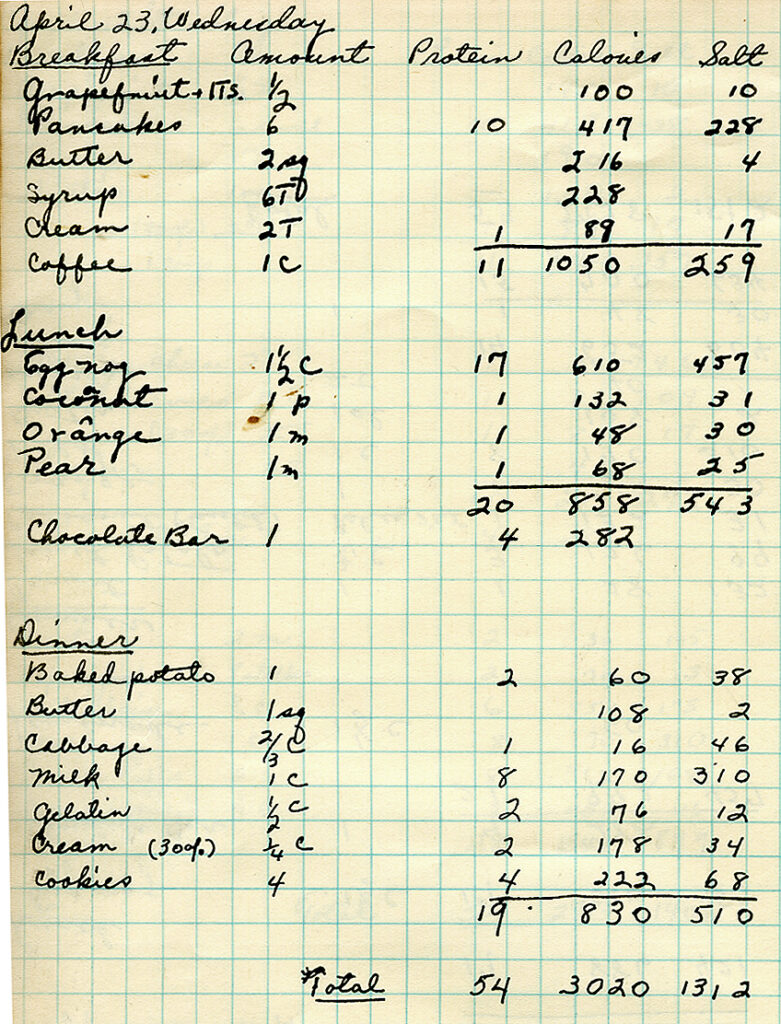 April 23, Wednesday
Breakfast Amount Protein Calories Salt
Grapefruit + 1Ts. 1/2 100 10
Pancakes 6 10 417 228
Butter 2 sq 216 4
Syrup 6T 228
Cream 2T 1 89 17
Coffee 1 C 11 1050 259
Lunch
Egg-nog 1 1/2 C 17 610 457
Coconut 1 p 1 132 31
Orange 1 m 1 48 30
Pear 1 m 1 68 25
20 858 543
Chocolate Bar 1 4 282
Dinner
Baked potato 1 2 60 38
Butter 1 sq 108 2
Cabbage 2/3 C 1 16 46
Milk 1 C 8 170 310
Gelatin 1/2 C 2 76 12
Cream (30%) 1/4 C 2 178 34
Cookies 4 4 222 68
19 830 510
*Total 54 3020 1312